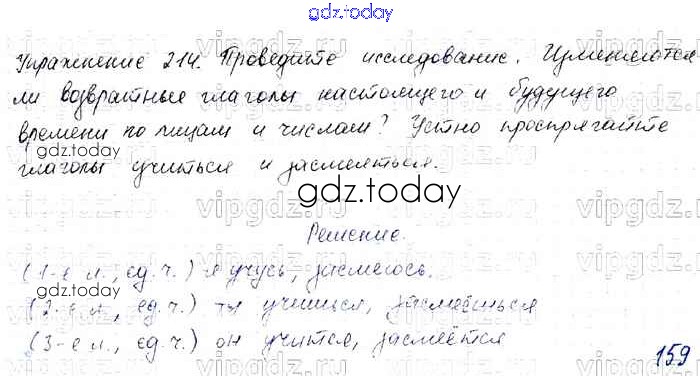 gdz.today
Упражнение 214. Проведите исследование. Изменяются
ли возвратные глаголы настоящего и будущего
времени по лицам и числам? Устно проспрягайте
gdz.today
глаголы учиться и засмеяться.
gdz.today
vipgdz.ru vipgdz.ru vipgdz.ru
Решение.
(1-е л., ед.ч.) я учусь, засмеюсь.
gdz.today
(2-е л., ед.ч.) ты учишься, засмеёшься
(3-е л., ед.ч.) он учится, засмеётся
159